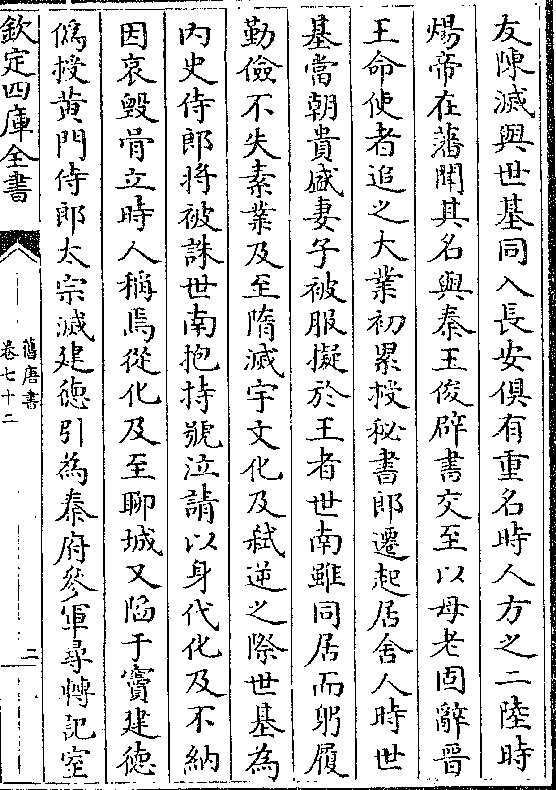 友陳滅與世基同入長安俱有重名時人方之二陸時
煬帝在藩聞其名與秦王俊辟書交至以母老固辭晉
王命使者追之大業初累授秘書郎遷起居舍人時世
基當朝貴盛妻子被服擬於王者世南雖同居而躬履
勤儉不失素業及至隋滅宇文化及弒逆之際世基為
內史侍郎將被誅世南抱持號泣請以身代化及不納
因哀毀骨立時人稱焉從化及至聊城又陷于竇建德
僞授黄門侍郎太宗滅建德引為秦府參軍尋轉記室
欽定四庫全書
舊唐書
卷七十二
二